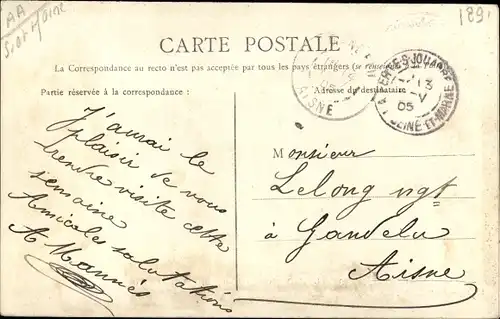 AA
S. et Marne
1891
CARTE POSTALE
La Correspondance au recto n'est pas acceptée par tous les pays étrangers (se
Partie réservée à la correspondance :
Adresse du destinataire
AISNE
LA FERTÉ-S-JOUARRE
13
-V
05
SEINE-ET-MARNE
J'aurai le
plaisir de vous
rendre visite cette
semaine
Amicales salutations
A Mannès
Monsieur
Lelong ngt
à Gandelu
Aisne